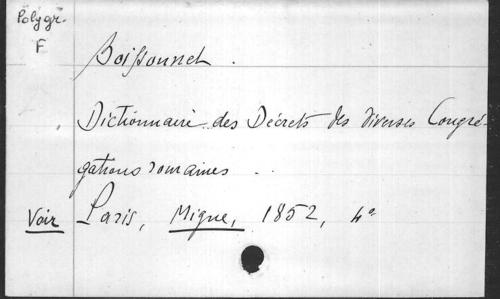 Polygr.
F
Boissonnet.
Dictionnaire des Décrets des diverses Congré-
gations romaines.
Voir Paris, Migne, 1852, 4°